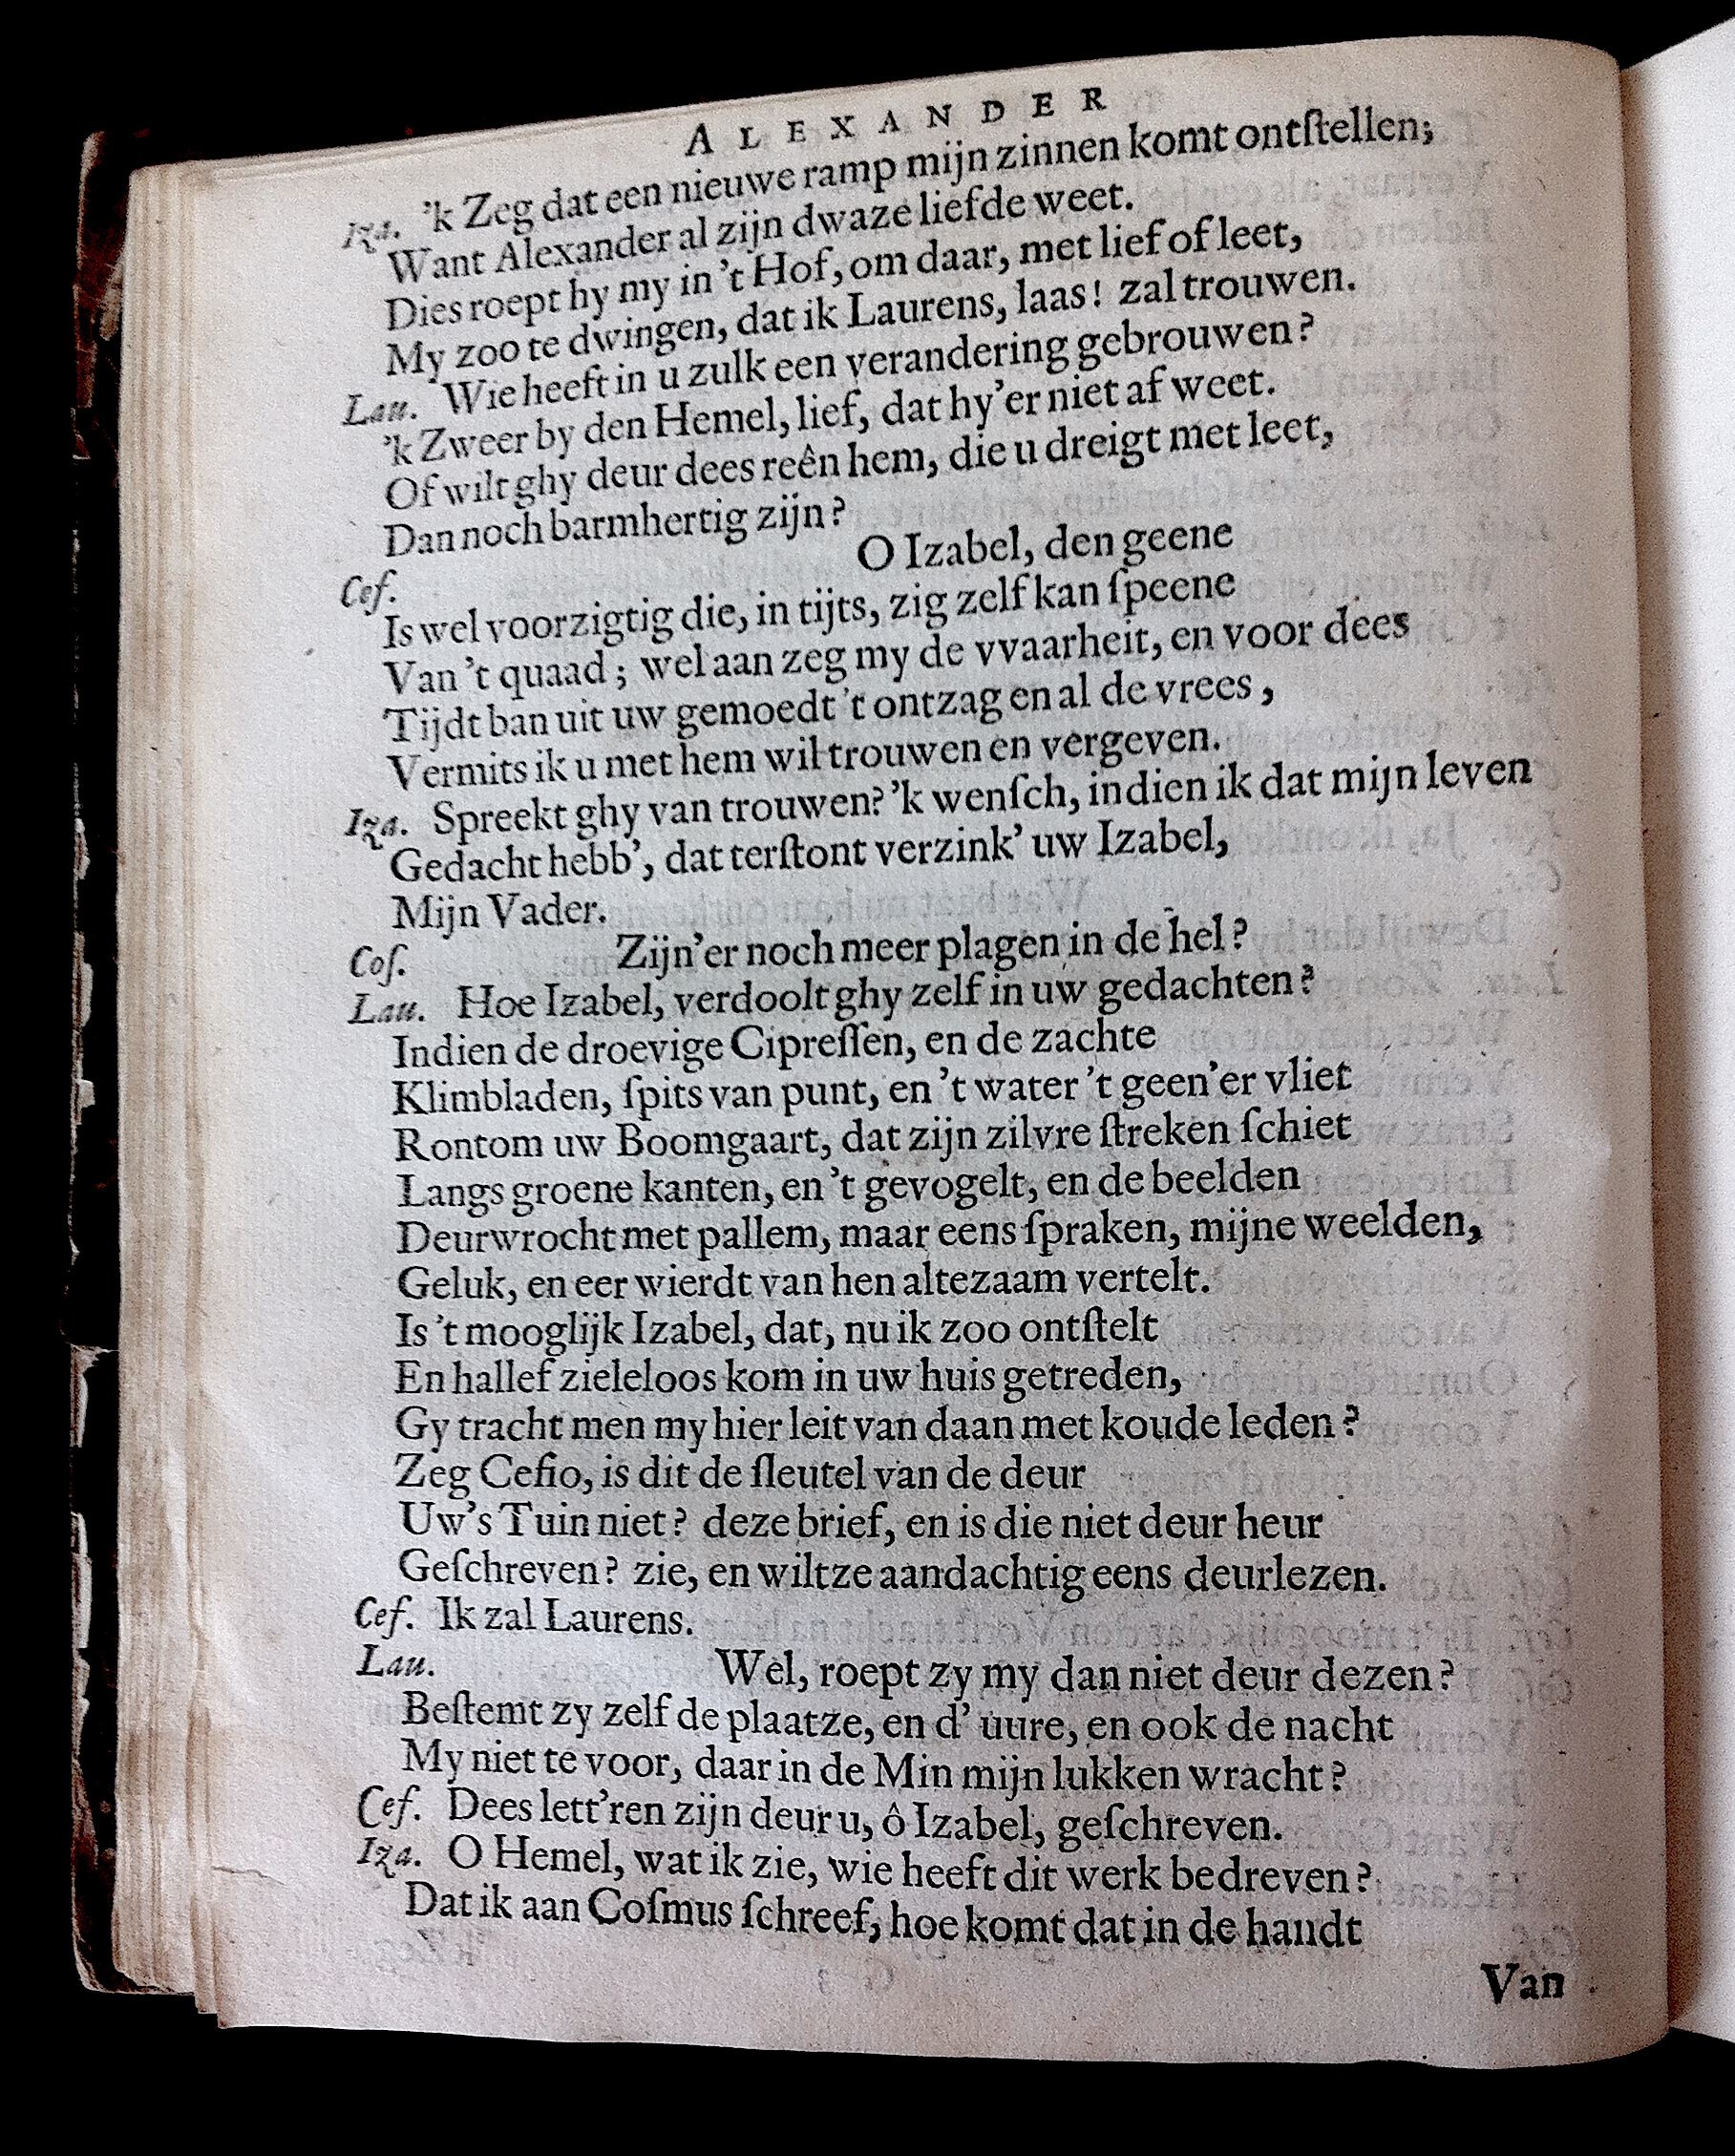 ALEXANDER
Iza. 'k Zeg dat een nieuwe ramp mijn zinnen komt ontſtellen;
Want Alexander al zijn dwaze liefde weet.
Dies roept hy my in 't Hof, om daar, met lief of leet,
My zoo te dwingen, dat ik Laurens, laas! zal trouwen.
Lau. Wie heeft in u zulk een verandering gebrouwen?
'k Zweer by den Hemel, lief, dat hy'er niet af weet.
Of wilt ghy deur dees reên hem, die u dreigt met leet,
Dan noch barmhertig zijn?
Ceſ. O Izabel, den geene
Is wel voorzigtig die, in tijts, zig zelf kan ſpeene
Van 't quaad; wel aan zeg my de vvaarheit, en voor dees
Tijdt ban uit uw gemoedt 't ontzag en al de vrees,
Vermits ik u met hem wil trouwen en vergeven.
Iza. Spreekt ghy van trouwen? 'k wenſch, indien ik dat mijn leven
Gedacht hebb', dat terſtont verzink' uw Izabel,
Mijn Vader.
Coſ. Zijn'er noch meer plagen in de hel?
Lau. Hoe Izabel, verdoolt ghy zelf in uw gedachten?
Indien de droevige Cipreſſen, en de zachte
Klimbladen, ſpits van punt, en 't water 't geen'er vliet
Rontom uw Boomgaart, dat zijn zilvre ſtreken ſchiet
Langs groene kanten, en 't gevogelt, en de beelden
Deurwrocht met pallem, maar eens ſpraken, mijne weelden,
Geluk, en eer wierdt van hen altezaam vertelt.
Is 't mooglijk Izabel, dat, nu ik zoo ontſtelt
En hallef zieleloos kom in uw huis getreden,
Gy tracht men my hier leit van daan met koude leden?
Zeg Ceſio, is dit de ſleutel van de deur
Uw's Tuin niet? deze brief, en is die niet deur heur
Geſchreven? zie, en wiltze aandachtig eens deurlezen.
Ceſ. Ik zal Laurens.
Lau. Wel, roept zy my dan niet deur dezen?
Beſtemt zy zelf de plaatze, en d' uure, en ook de nacht
My niet te voor, daar in de Min mijn lukken wracht?
Ceſ. Dees lett'ren zijn deur u, ô Izabel, geſchreven.
Iza. O Hemel, wat ik zie, wie heeft dit werk bedreven?
Dat ik aan Coſmus ſchreef, hoe komt dat in de handt
Van